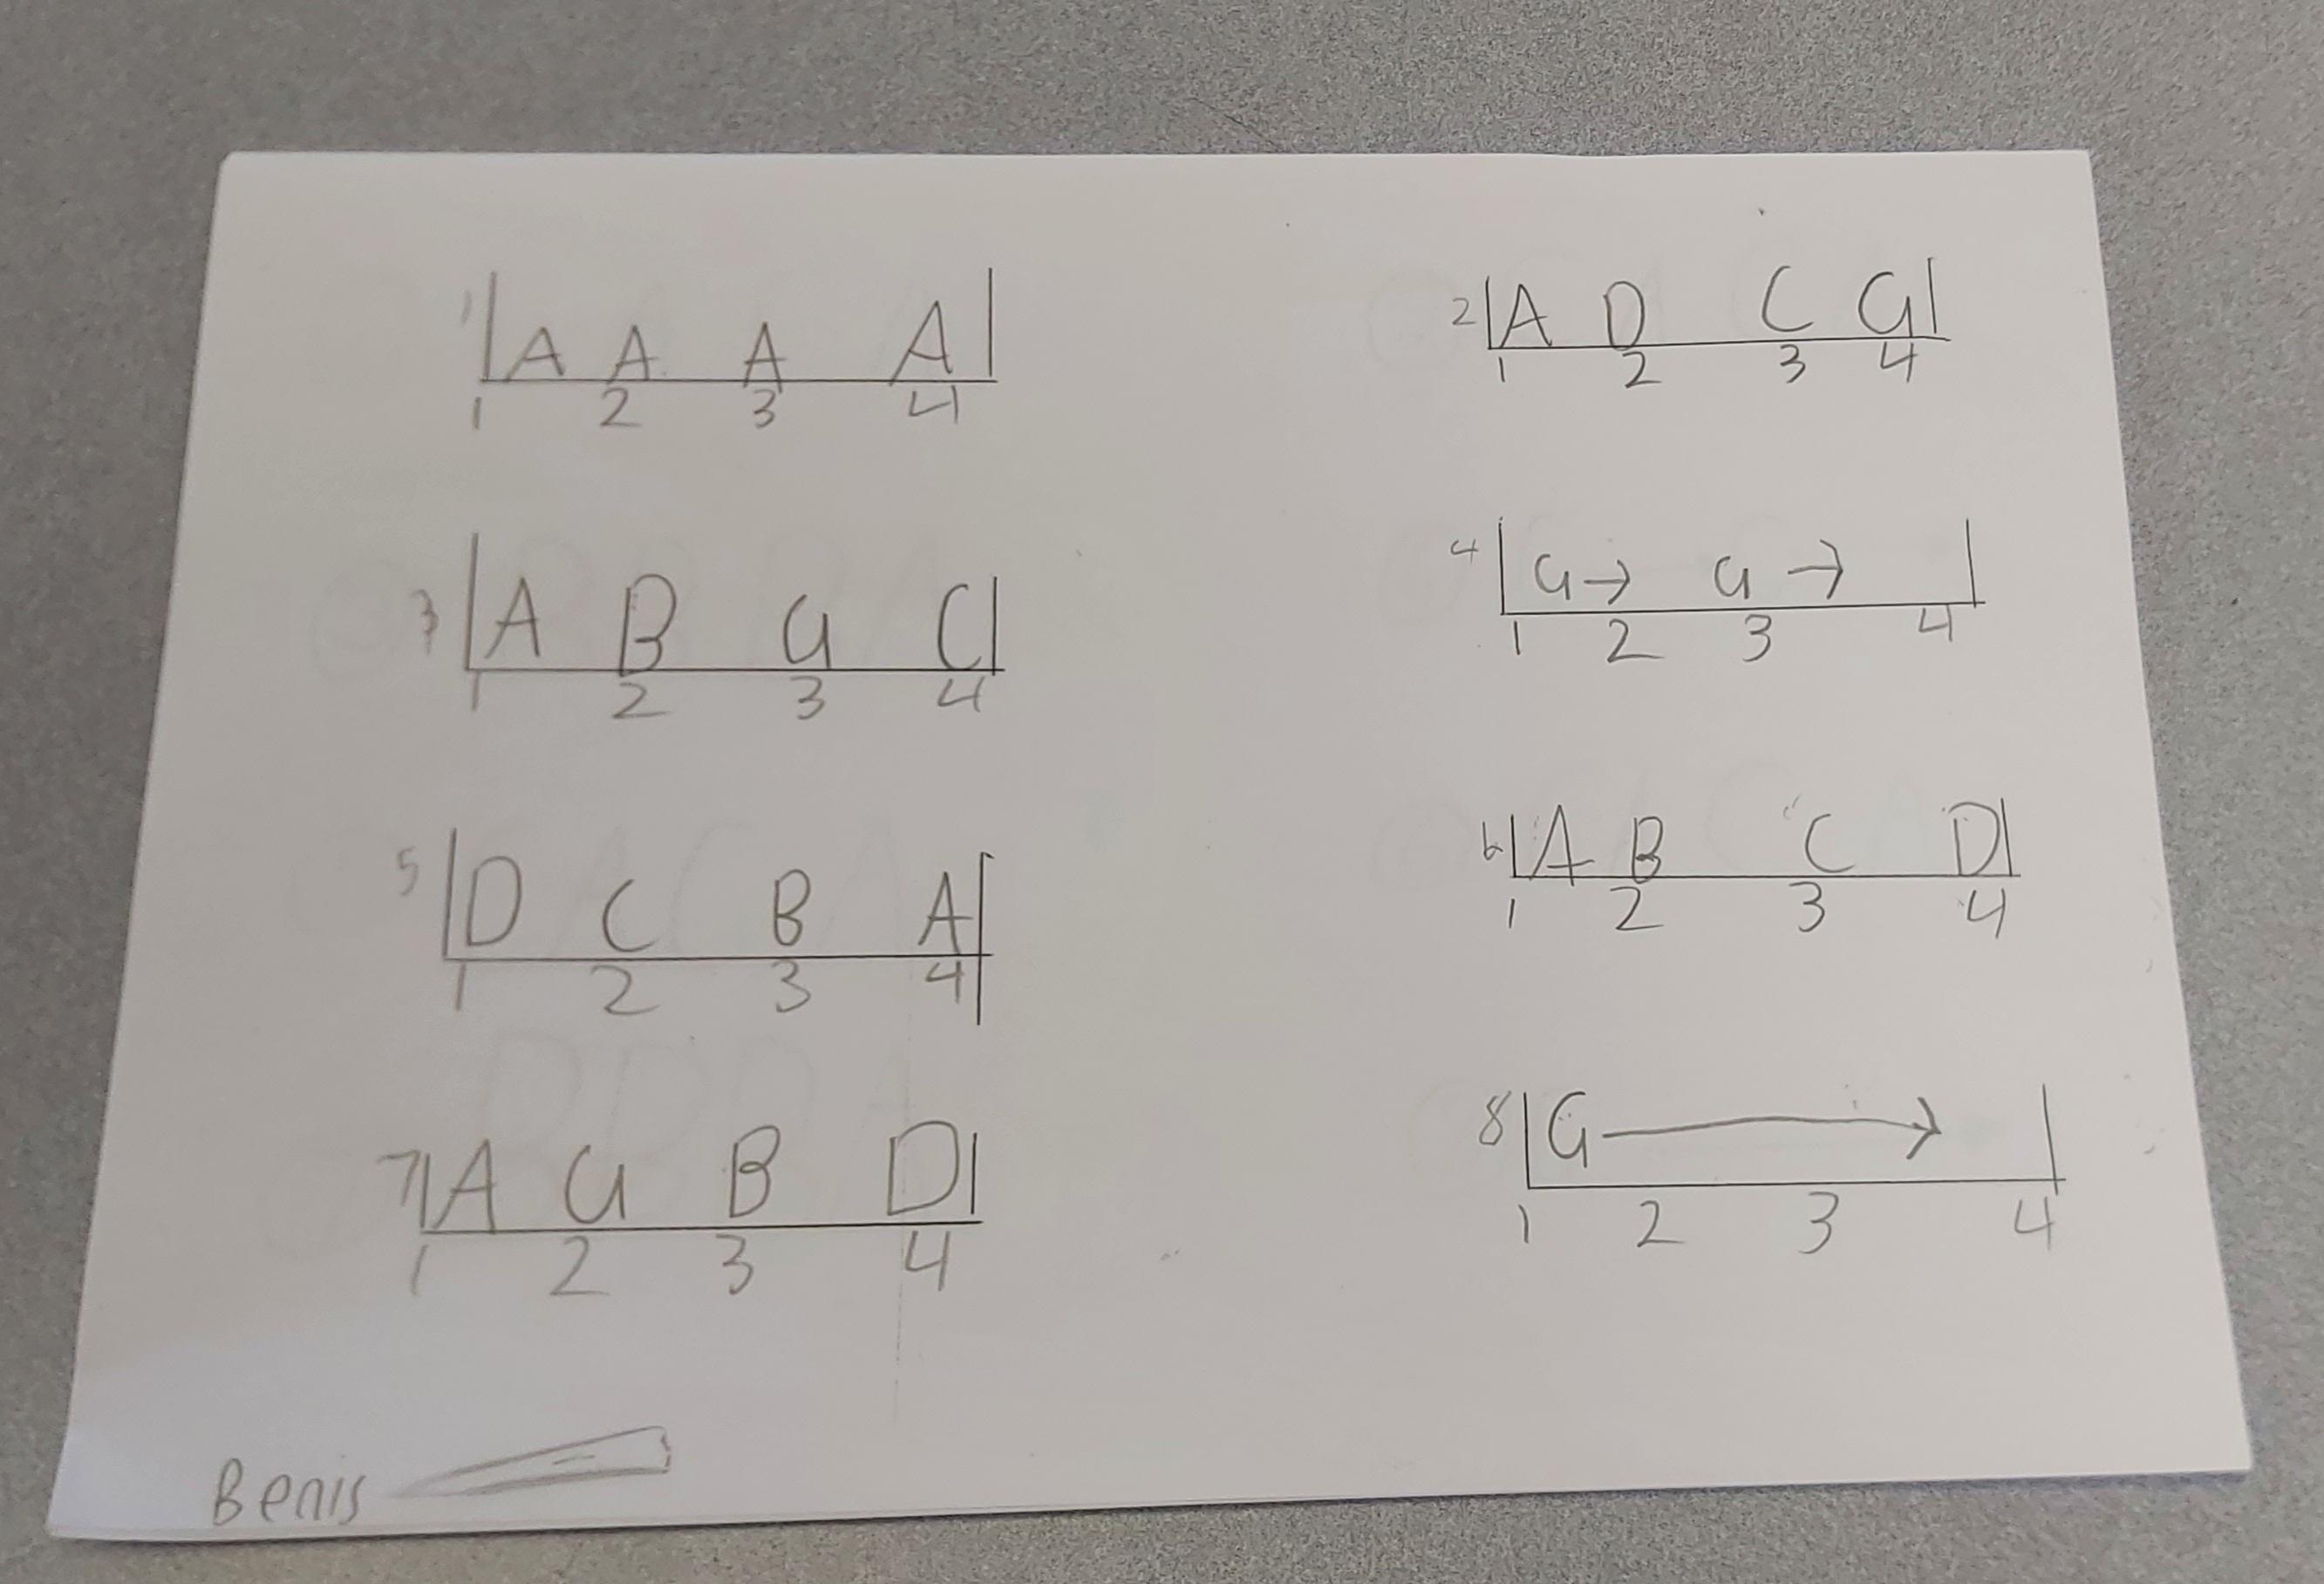 1 | A A A A |
1 2 3 4
2 | A D C G |
1 2 3 4
3 | A B G C |
1 2 3 4
4 | G → G → |
1 2 3 4
5 | D C B A |
1 2 3 4
6 | A B C D |
1 2 3 4
7 | A G B D |
1 2 3 4
8 | G → |
1 2 3 4
Benis